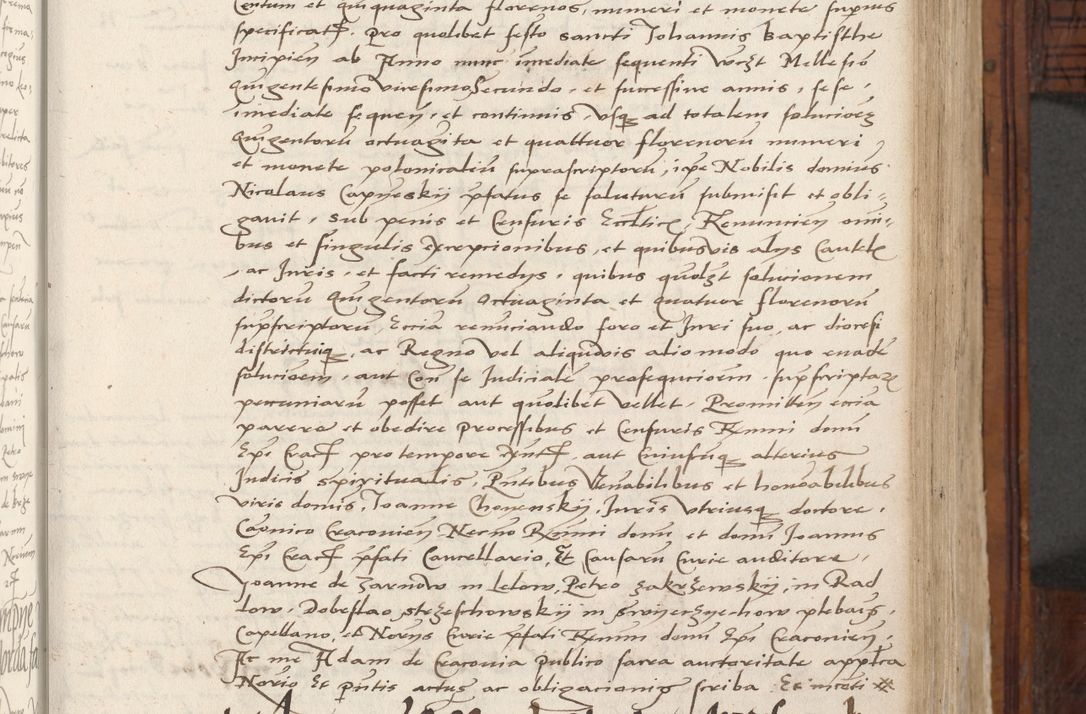 Centum et quiquaginta florenos, numeri et monete supius
specificat. Pro quolibet festo Sancti Iohannis Baptisthe
Incipien ab Anno nunc imediate sequenti vczt Millesio
Quigentesimo vicesimo Secundo, et successive annis, sese,
imediate sequen, et continuis, vsq ad totalem solucioez
Quigentoru octuagita et quattuor florenoru numeri
et monete polonicaliu suprascriptoru, ipe Nobilis dominus
Nicolaus Capyeskij pfatus se soluturu submisit et obli-
gavit, sub penis et Censuris Ecclticis, Renuncien omi-
bus et singulis Excepcionibus, et quibusvis alys Cautel
, ac Iuris, et facti remedys, quibus quolzt solucionem
dictoru Quigentoru Octuaginta et quatuor florenoru
supscriptoru, Eccia renuciando foro et Iuri suo, ac diocesi
districtuiq, ac Regno vel aliquovis alio modo quo evade
solucioem, aut Con se Iudiciale prosequciorem supscriptaz
peccuniaru posset aut quolibet vellet, Promitten eccia
parere et obedire processibus et Censuris Remi domi
Epi Crac pro tempore exntis, aut Cuiusuq alterius
Iudicis spiritualis, Pntibus Venabilibus et honoabilibus
viris domis, Ioanne Choyenskij, Iuris vtriusq doctore,
Canonico Cracovien Necno Remi domi et domi Ioannis
Epi Crac pfati Cancellario, Et Causaru Curie auditore,
Ioanne de Zarnow in Lelow, Petro Zakrzewskij, in Rad
low, Dobeslao strzeschowskij in swyerzyehow plebais,
Capellano, et Norys Curie pfati Remi domi Epi Cracovien,
Ac me Adam de Cracovia publico sacra auctoritate applca
Norio Et pntis actus ac obligacionis scriba